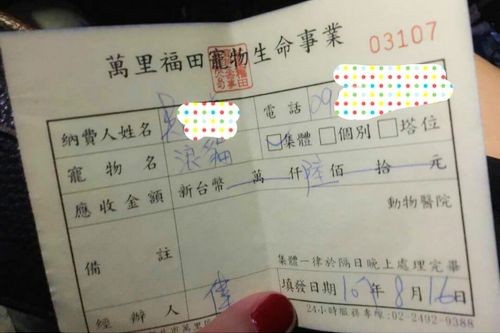 萬里福田寵物生命事業 03107
納費人姓名 吳 電話 09
寵物名 浪貓 ☑集體 □個別 □塔位
應收金額 新台幣 萬 仟 陸 佰 拾 元
動物醫院
備註
集體一律於隔日晚上處理完畢
經辦人 偉 填發日期 107年8月16日
24小時服務專線:02-2492-0388